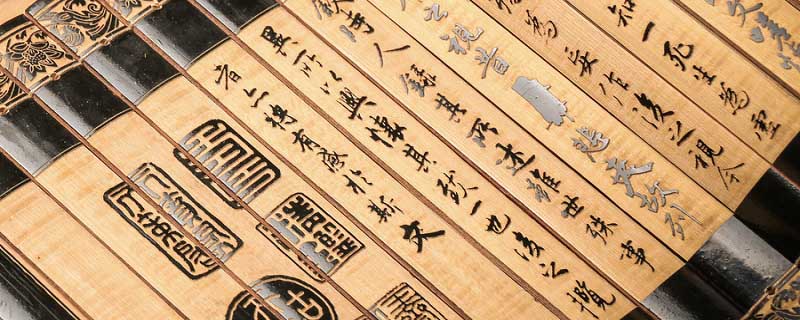 文嗟悼
知一死生為虛
為妄作後之視今
之視昔悲夫故列
叙時人錄其所述雖世殊事
異所以興懷其致一也後之攬
者亦將有感於斯文